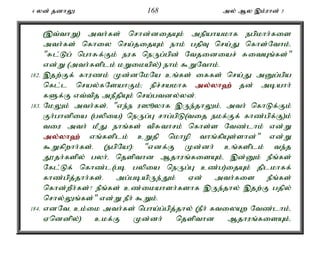 4 லன் தனாலு 168 அல் ஆல இம்ரான் 3
(இவ்வாறு) அவர்கள் சொன்னதையும் அநியாயமாக நபிமார்களை
அவர்கள் கொலை செய்ததையும் நாம் பதிவு செய்து கொள்வோம்.
"சுட்டுப் பொசுக்கும் நரக நெருப்பின் வேதனையைச் சுவையுங்கள்"
என்று (அவர்களிடம் மறுமையில்) நாம் கூறுவோம்.
182. இதற்குக் காரணம் முன்னமேயே உங்கள் கைகள் செய்து அனுப்பிய
கெட்ட செயல்களேயாகும்; நிச்சயமாக அல்லாஹ் தன் அடியார்
களுக்கு எவ்வித அநீதியும் செய்பவனல்லன்.
183. மேலும் அவர்கள், "எந்த ரஸூலாக இருந்தாலும், அவர் கொடுக்கும்
குர்பானியை (பலியை) நெருப்பு சாப்பிடு(வதை நமக்குக் காண்பிக்கு)ம்
வரை அவர் மீது நாங்கள் விசுவாசம் கொள்ள வேண்டாம் என்று
அல்லாஹ் எங்களிடம் உறுதி மொழி வாங்கியுள்ளான்" என்று
கூறுகிறார்கள். (நபியே): "எனக்கு முன்னர் உங்களிடம் வந்த
தூதர்களில் பலர், தெளிவான ஆதாரங்களையும், இன்னும் நீங்கள்
கேட்டுக் கொண்ட(படி பலியை நெருப்பு உண்ப)தையும் திடமாகக்
காண்பித்தார்கள். அப்படியிருந்தும் ஏன் அவர்களை நீங்கள்
கொன்றீர்கள்? நீங்கள் உண்மையாளர்களாக இருந்தால் இதற்கு பதில்
சொல்லுங்கள்" என்று நீர் கூறும்.
184. எனவே. உம்மை அவர்கள் பொய்ப்பித்தால் (நீர் கவலையுற வேண்டாம்.
ஏனெனில்) உமக்கு முன்னர் தெளிவான ஆதாரங்களையும்,